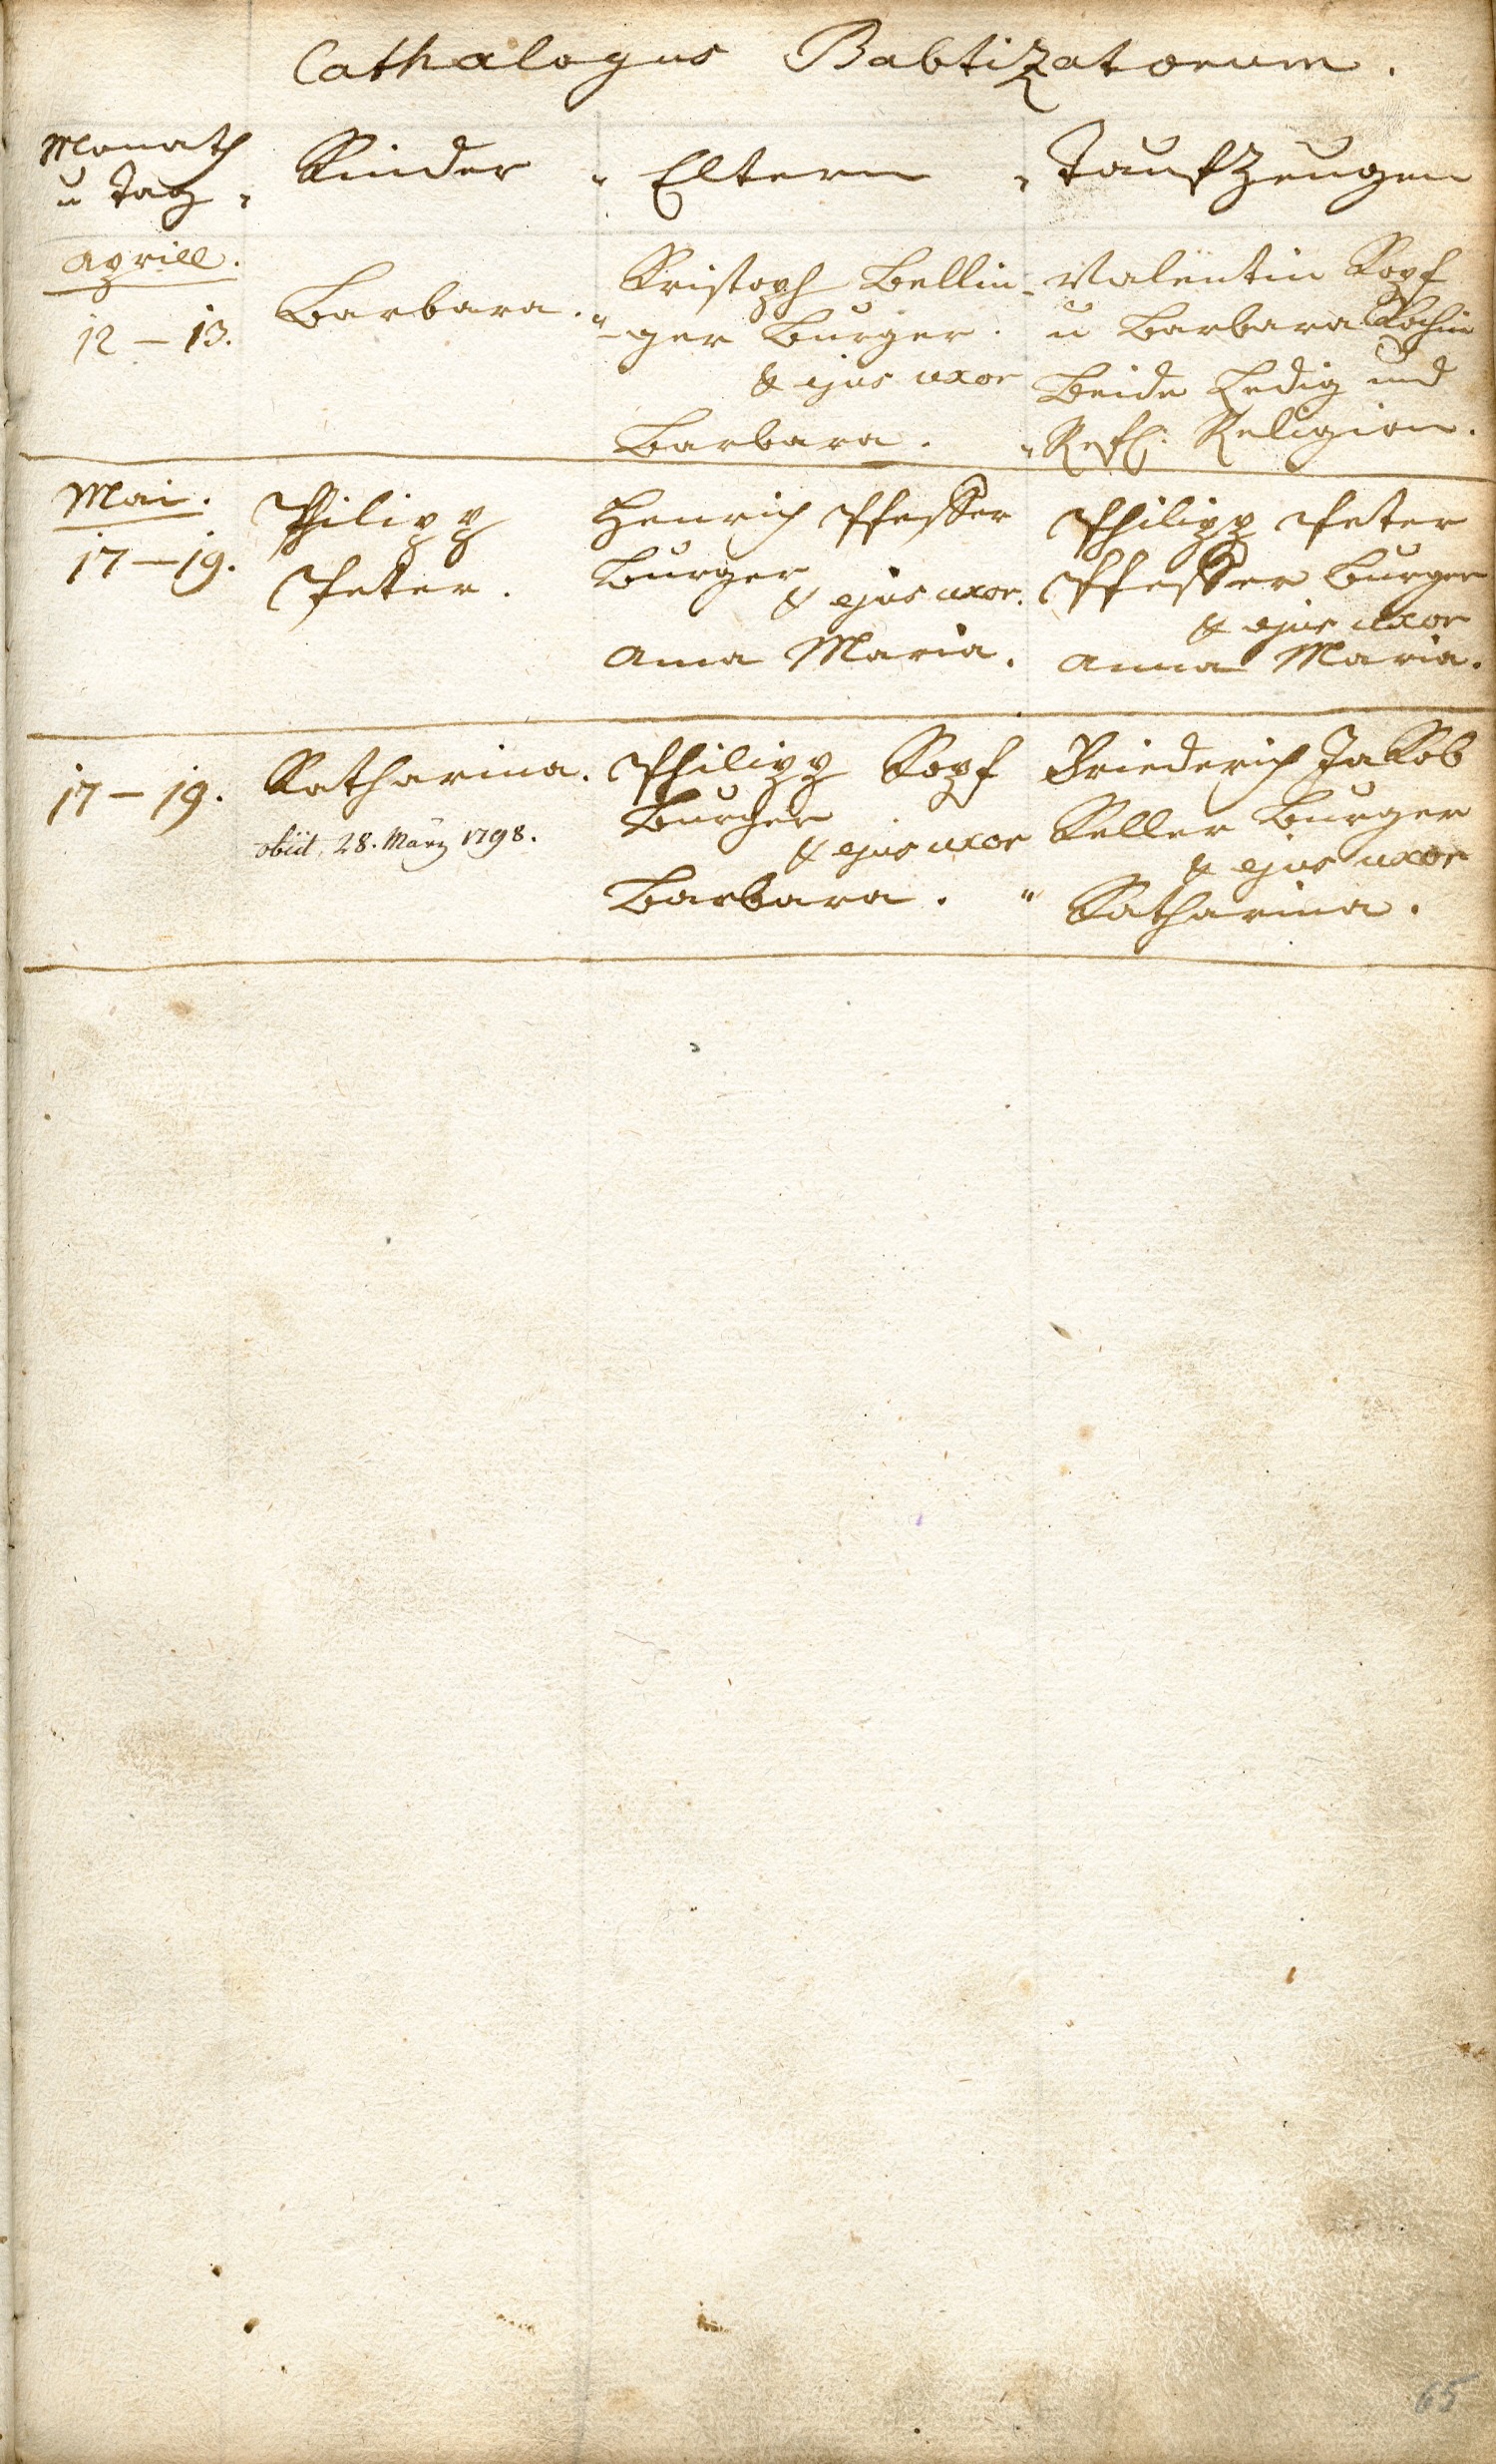 Cathalogus Babtizatorum.
Monath
u Tag
Kinder
Eltern
Taufzeugen
Aprill.
12 – 13.
Barbara.
Kristoph Bellin-
-ger Burger.
& ejus uxor
Barbara.
Valentin Kopf
u Barbara Kochin
Beide Ledig und
Refl: Religion.
Mai.
17 – 19.
Philipp
Peter.
Henrich Pfeffer
Burger
& ejus uxor.
Anna Maria.
Philipp Peter
Pfeffer Burger
& ejus uxor
Anna Maria.
17 – 19.
Katharina.
obiit, 28. März 1798.
Philipp Kopf
Burger
& ejus uxor
Barbara.
Friederich Jakob
Keller Burger
& ejus uxor
Katharina.
65